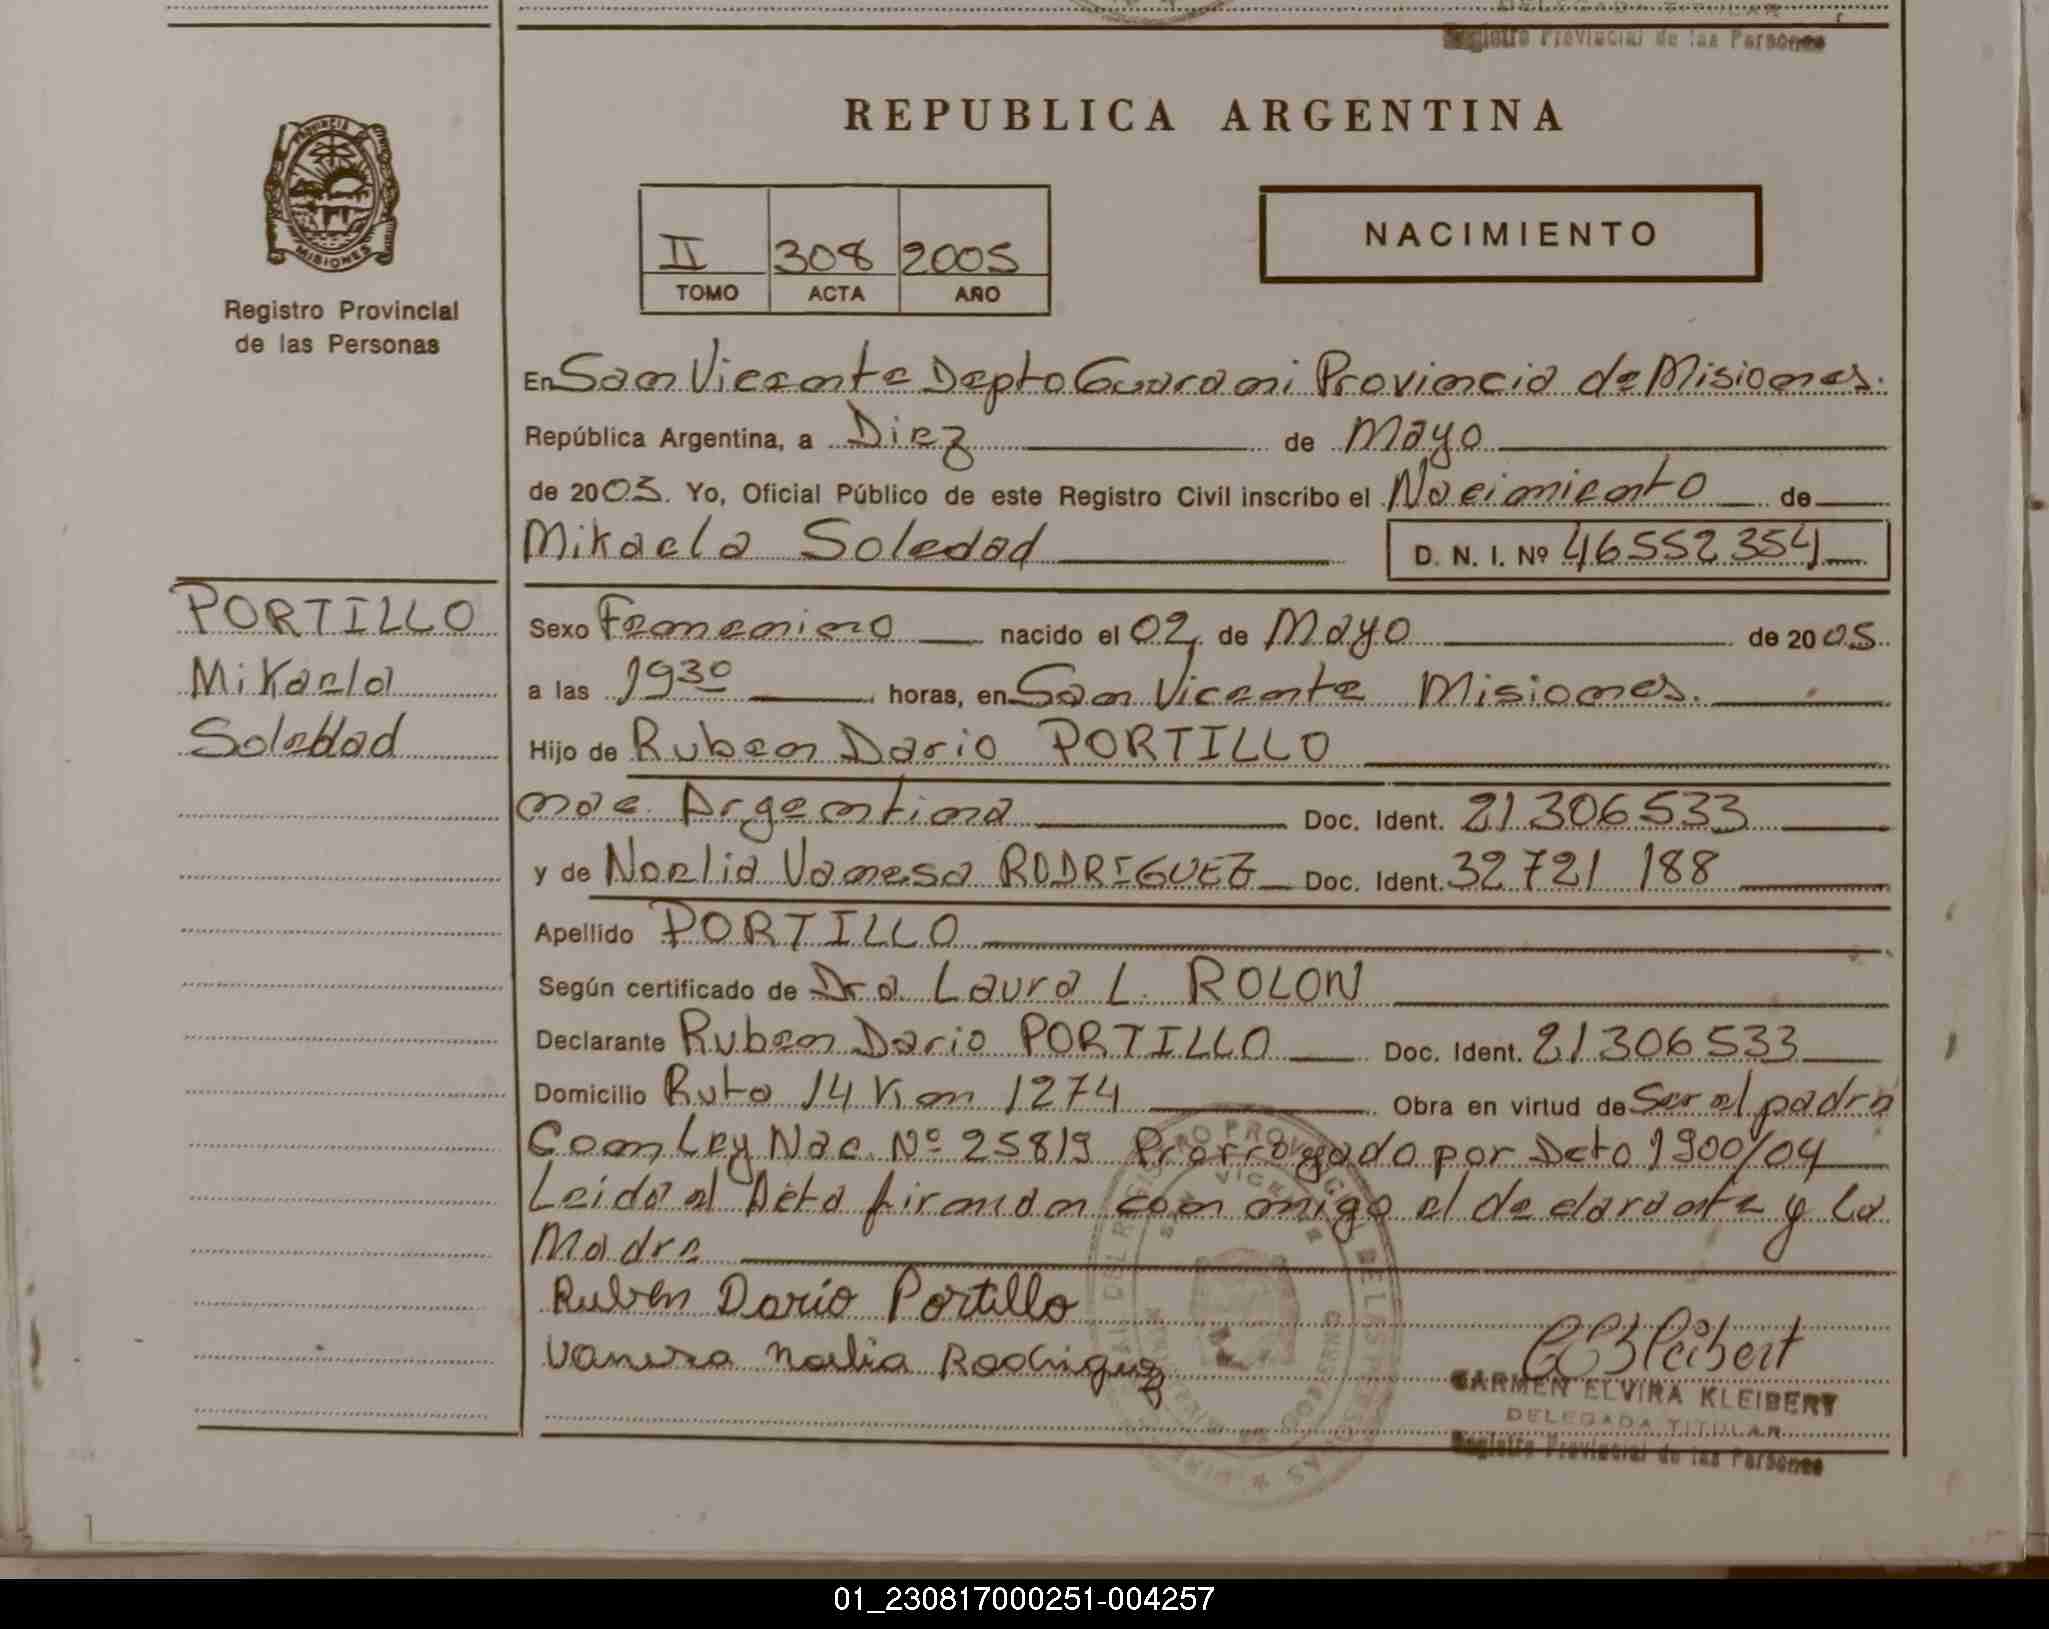 DELEGADA TITULAR
Registro Provincial de las Personas
REPUBLICA ARGENTINA
PROVINCIA
MISIONES
Registro Provincial
de las Personas
NACIMIENTO
II 308 2005
TOMO ACTA AÑO
En San Vicente Depto Guarani Provincia de Misiones.
República Argentina, a Diez de Mayo
de 2005. Yo, Oficial Público de este Registro Civil inscribo el Nacimiento de
Mikaela Soledad D. N. I. Nº 46552354
PORTILLO
Mikaela
Soledad
Sexo Femenino nacido el 02 de Mayo de 2005
a las 1930 horas, en San Vicente Misiones.
Hijo de Ruben Dario PORTILLO
nac. Argentina Doc. Ident. 21306533
y de Noelia Vanesa RODRIGUEZ Doc. Ident. 32721188
Apellido PORTILLO
Según certificado de Dra. Laura L. ROLON
Declarante Ruben Dario PORTILLO Doc. Ident. 21306533
Domicilio Ruta 14 Km 1274 Obra en virtud de Ser el padre
Con Ley Nac. Nº 25819 Prorrogado por Dcto 1900/04
Leida el Acta firman con migo el declarante y la
Madre
Ruben Dario Portillo
Vanesa Noelia Rodriguez
CEKleibert
CARMEN ELVIRA KLEIBERT
DELEGADA TITULAR
Registro Provincial de las Personas
01_230817000251-004257